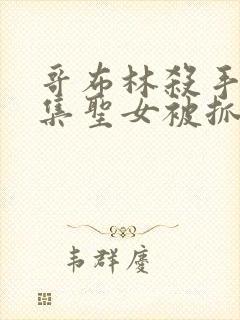 哥布林殺手
集聖女被抓
韦群慶